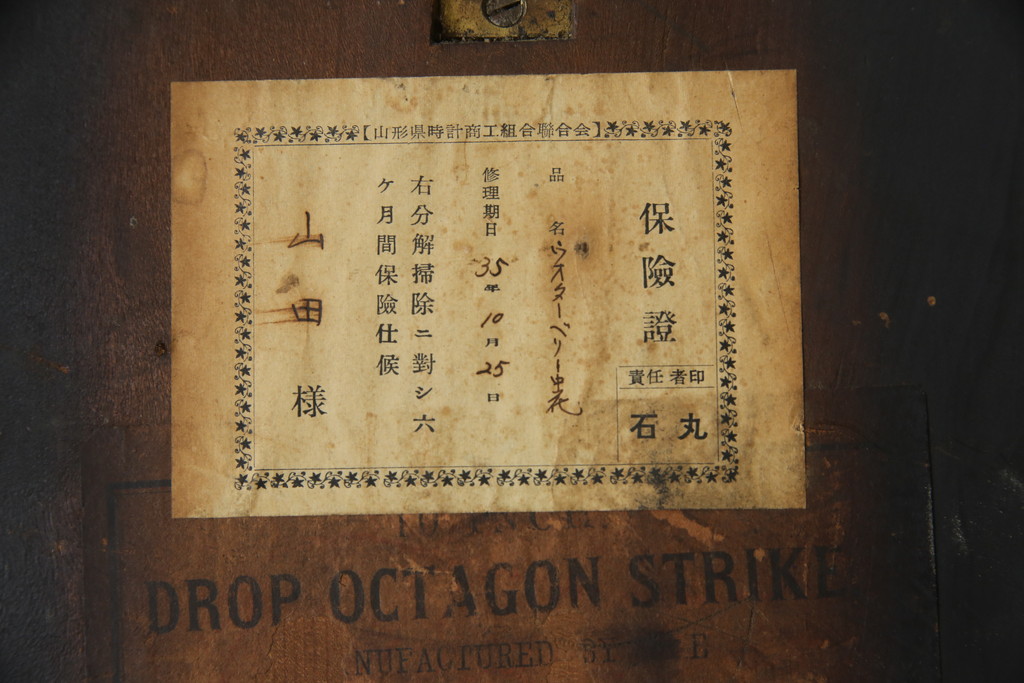 【山形県時計商工組合聯合会】
保險證
責任者印
石丸
品名ウオターベリー中花
修理期日35年10月25日
右分解掃除ニ對シ六
ケ月間保險仕候
山田様
DROP OCTAGON STRIKE
NUFACTURED BY